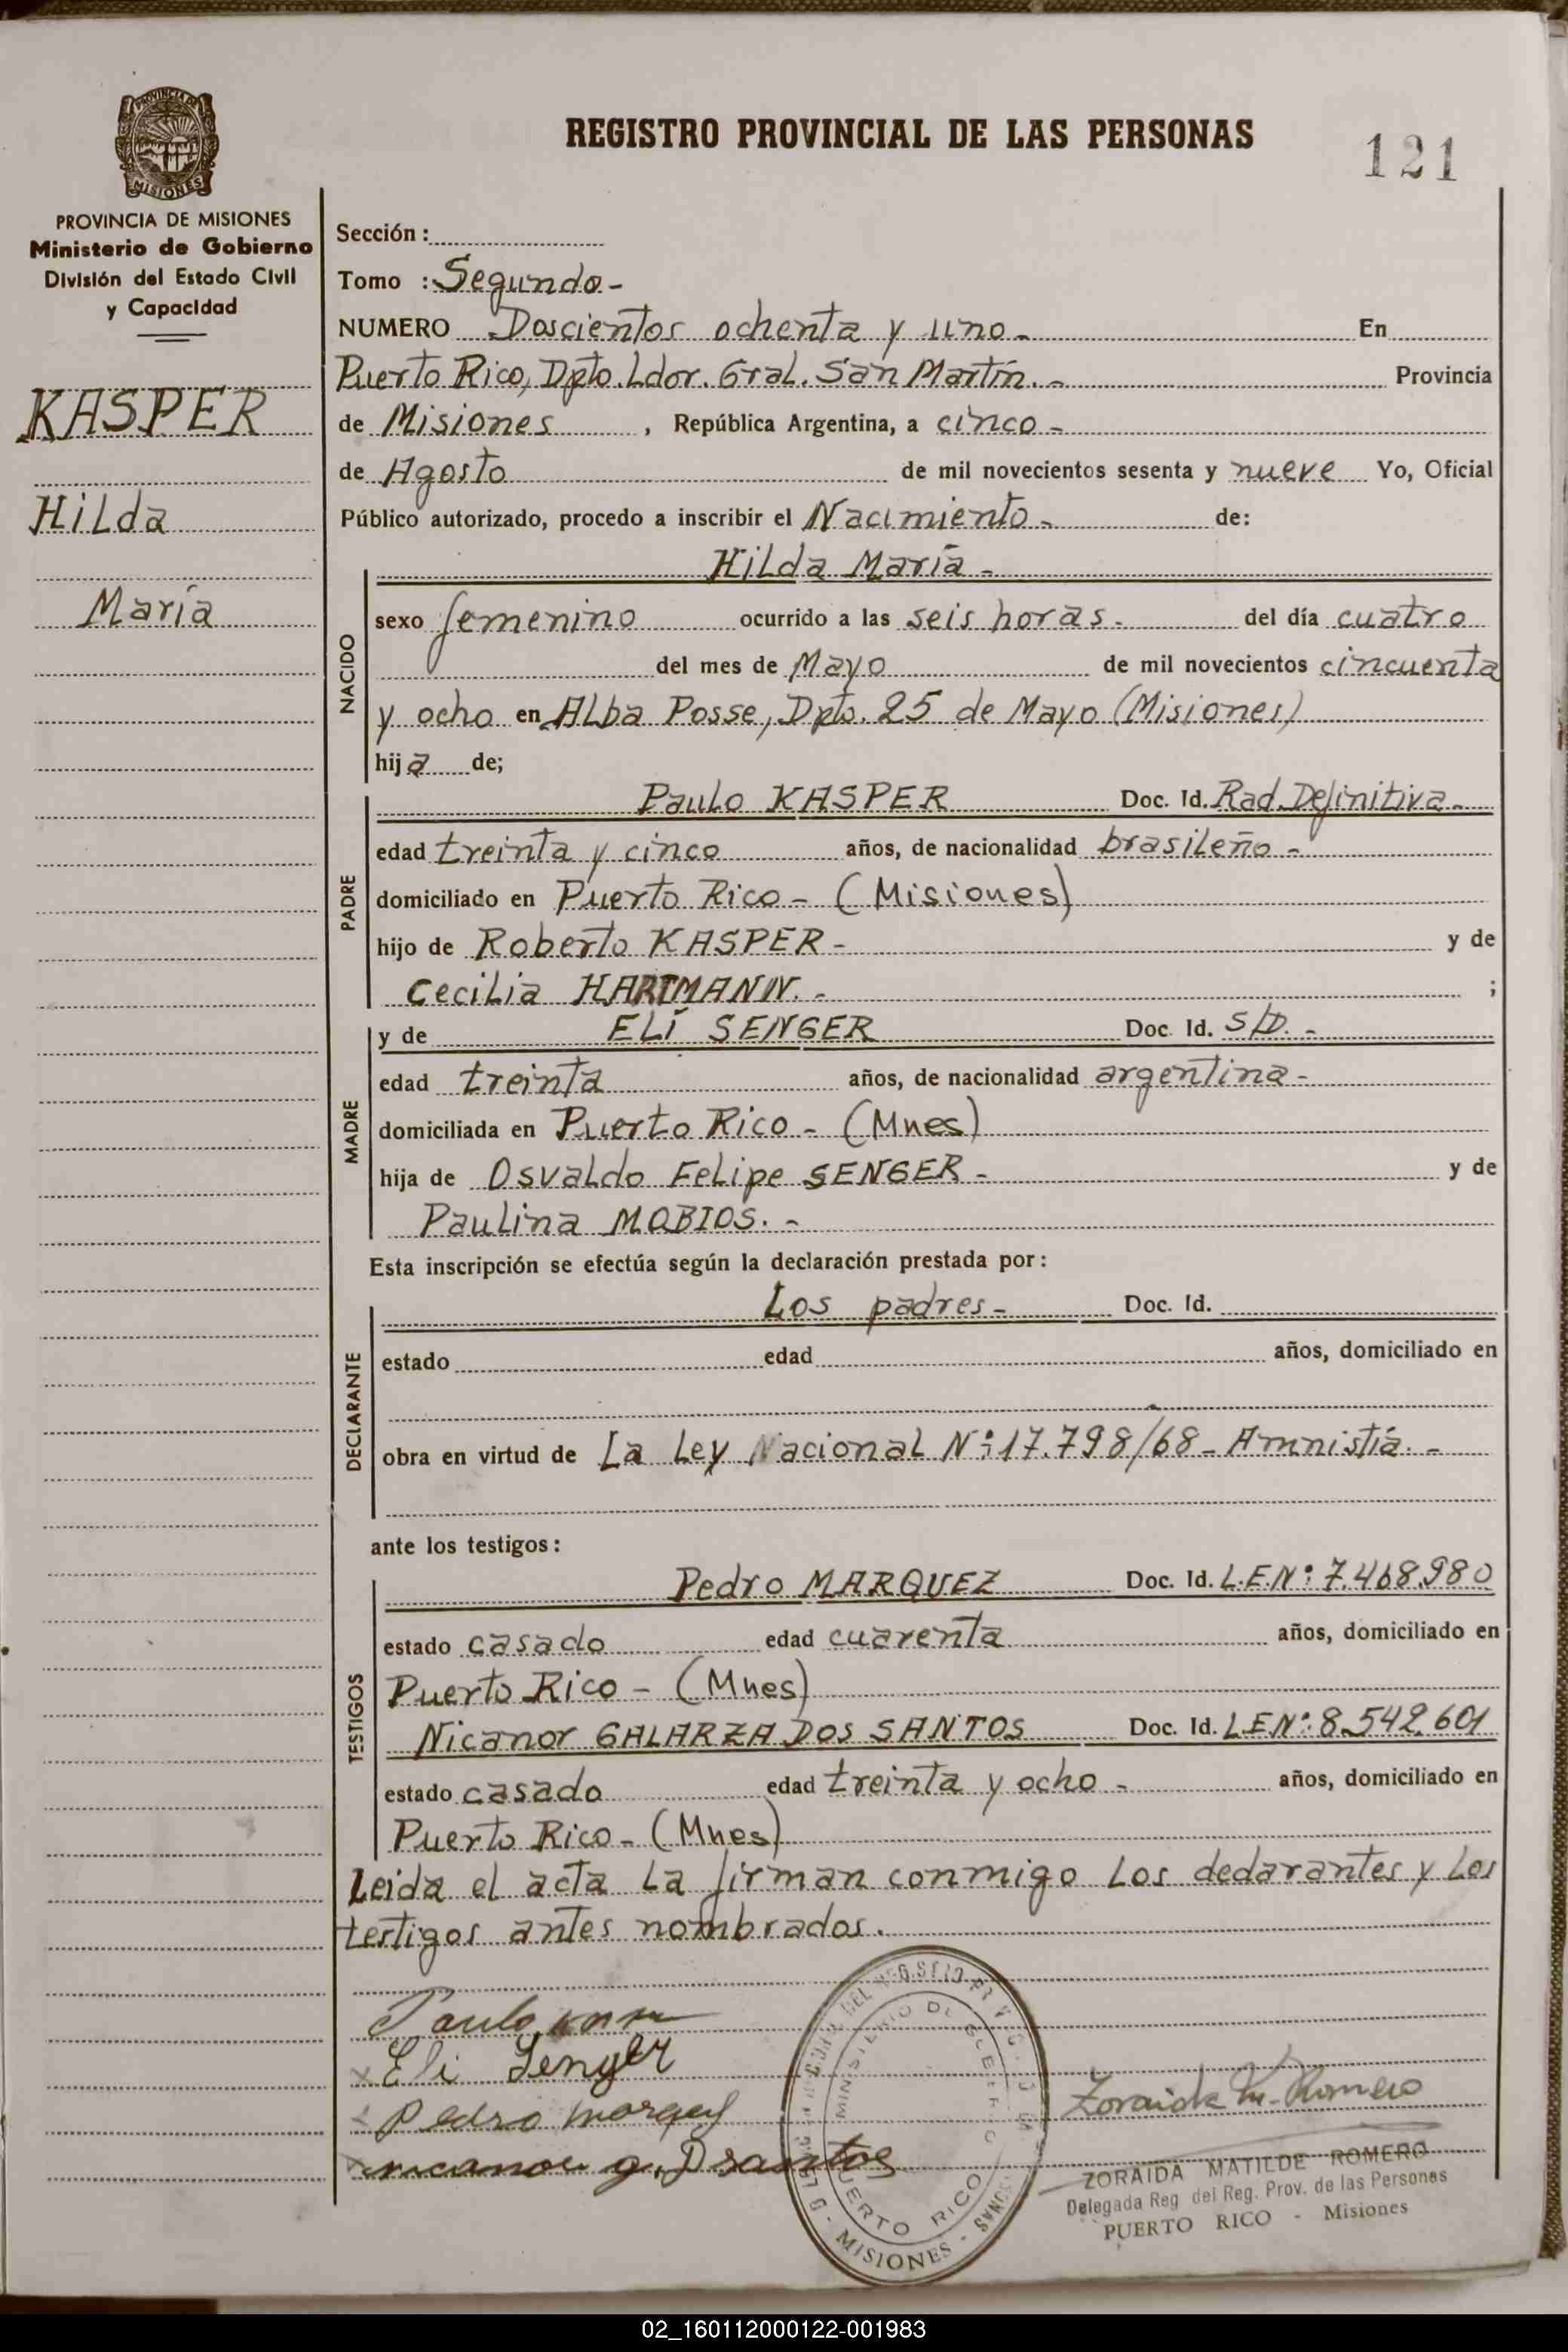 PROVINCIA DE
MISIONES
PROVINCIA DE MISIONES
Ministerio de Gobierno
División del Estado Civil
y Capacidad
KASPER
Hilda
María
REGISTRO PROVINCIAL DE LAS PERSONAS
121
Sección :
Tomo : Segundo -
NUMERO Doscientos ochenta y uno - En
Puerto Rico, Dpto. Ldor. Gral. San Martín. - Provincia
de Misiones , República Argentina, a cinco -
de Agosto de mil novecientos sesenta y nueve Yo, Oficial
Público autorizado, procedo a inscribir el Nacimiento - de:
NACIDO
Hilda María -
sexo femenino ocurrido a las seis horas. - del día cuatro
del mes de Mayo de mil novecientos cincuenta
y ocho en Alba Posse, Dpto. 25 de Mayo (Misiones)
hija de;
PADRE
Paulo KASPER Doc. Id. Rad. Definitiva -
edad treinta y cinco años, de nacionalidad brasileño -
domiciliado en Puerto Rico - (Misiones)
hijo de Roberto KASPER - y de
Cecilia HARTMANN. - ;
MADRE
y de ELÍ SENGER Doc. Id. S/D. -
edad treinta años, de nacionalidad argentina -
domiciliada en Puerto Rico - (Mnes)
hija de Osvaldo Felipe SENGER - y de
Paulina MOBIOS. -
Esta inscripción se efectúa según la declaración prestada por :
DECLARANTE
Los padres - Doc. Id.
estado edad años, domiciliado en
obra en virtud de La Ley Nacional Nº: 17.798/68 - Amnistía. -
ante los testigos :
TESTIGOS
Pedro MARQUEZ Doc. Id. L.E.Nº: 7.468.980
estado casado edad cuarenta años, domiciliado en
Puerto Rico - (Mnes)
Nicanor GALARZA DOS SANTOS Doc. Id. L.E.Nº: 8.542.601
estado casado edad treinta y ocho - años, domiciliado en
Puerto Rico - (Mnes)
Leida el acta La firman conmigo Los declarantes y Los
testigos antes nombrados.
Paulo
x Eli Senger
x Pedro Marquez
x nicanor g. D santos
DEL REGISTRO
MINISTERIO DE
PUERTO RICO
MISIONES
Zoraida M. Romero
ZORAIDA MATILDE ROMERO
Delegada Reg del Reg. Prov. de las Personas
PUERTO RICO - Misiones
02_160112000122-001983